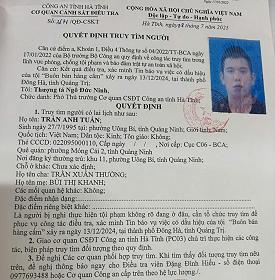 CÔNG AN TỈNH HÀ TĨNH
CƠ QUAN CẢNH SÁT ĐIỀU TRA
/QĐ-CSKT
CỘNG HÒA XÃ HỘI CHỦ NGHĨA VIỆT NAM
Độc lập - Tự do - Hạnh phúc
Hà Tĩnh, ngày tháng 7 năm 2025
QUYẾT ĐỊNH TRUY TÌM NGƯỜI
Căn cứ điểm a, Khoản 1, Điều 4 Thông tư số 04/2022/TT-BCA ngày
17/01/2022 của Bộ trưởng Bộ Công an quy định về công tác truy tìm trong
lĩnh vực phòng, chống tội phạm và bảo đảm trật tự an toàn xã hội;
Căn cứ Kết quả điều tra, xác minh Tin báo vụ việc có dấu hiệu
của tội "Buôn bán hàng cấm" xảy ra ngày 13/12/2024, tại thành phố
Đông Hà, tỉnh Quảng Trị.
Tôi: Thượng tá Ngô Đức Ninh,
Chức danh: Phó Thủ trưởng Cơ quan CSĐT Công an tỉnh Hà Tĩnh,
QUYẾT ĐỊNH
1. Truy tìm người có lai lịch như sau:
Họ tên: TRẦN ANH TUẤN;
Sinh ngày 27/7/1995 tại: phường Uông Bí, tỉnh Quảng Ninh; Giới tính: Nam;
Quốc tịch: Việt Nam; Dân tộc: Kinh; Tôn giáo: Không;
Thẻ CCCD: 022095000110, Cấp ngày / / , Nơi cấp: Cục C06 - BCA;
Quê quán: phường Móng Cái 2, tỉnh Quảng Ninh
Nơi đăng ký thường trú: khu 11, phường Uông Bí, tỉnh Quảng Ninh;
Chỗ ở khác: Chưa xác định;
Họ tên cha: TRẦN XUÂN THƯỞNG;
Họ tên mẹ: BÙI THỊ KHANH;
Các mối quan hệ khác: Không;
Đặc điểm nhận dạng:
Đặc điểm riêng biệt khác:
Là người bị nghi thực hiện tội phạm không rõ đang ở đâu, cần tổ chức truy tìm để
phục vụ công tác điều tra, xác minh Tin báo vụ việc có dấu hiệu của tội "Buôn bán
hàng cấm" xảy ra ngày 13/12/2024, tại thành phố Đông Hà, tỉnh Quảng Trị.
2. Giao cơ quan CSĐT Công an tỉnh Hà Tĩnh (PC03) chủ trì thực hiện các công
tác, biện pháp truy tìm đối tượng theo quy định.
3. Đề nghị Các cơ quan phối hợp truy tìm. Khi tìm thấy đối tượng truy tìm nêu
trên, đề nghị thông báo ngay cho Điều tra viên Đặng Đình Hiếu - số điện thoại
0977693488 hoặc Cơ quan Công an cấp trên